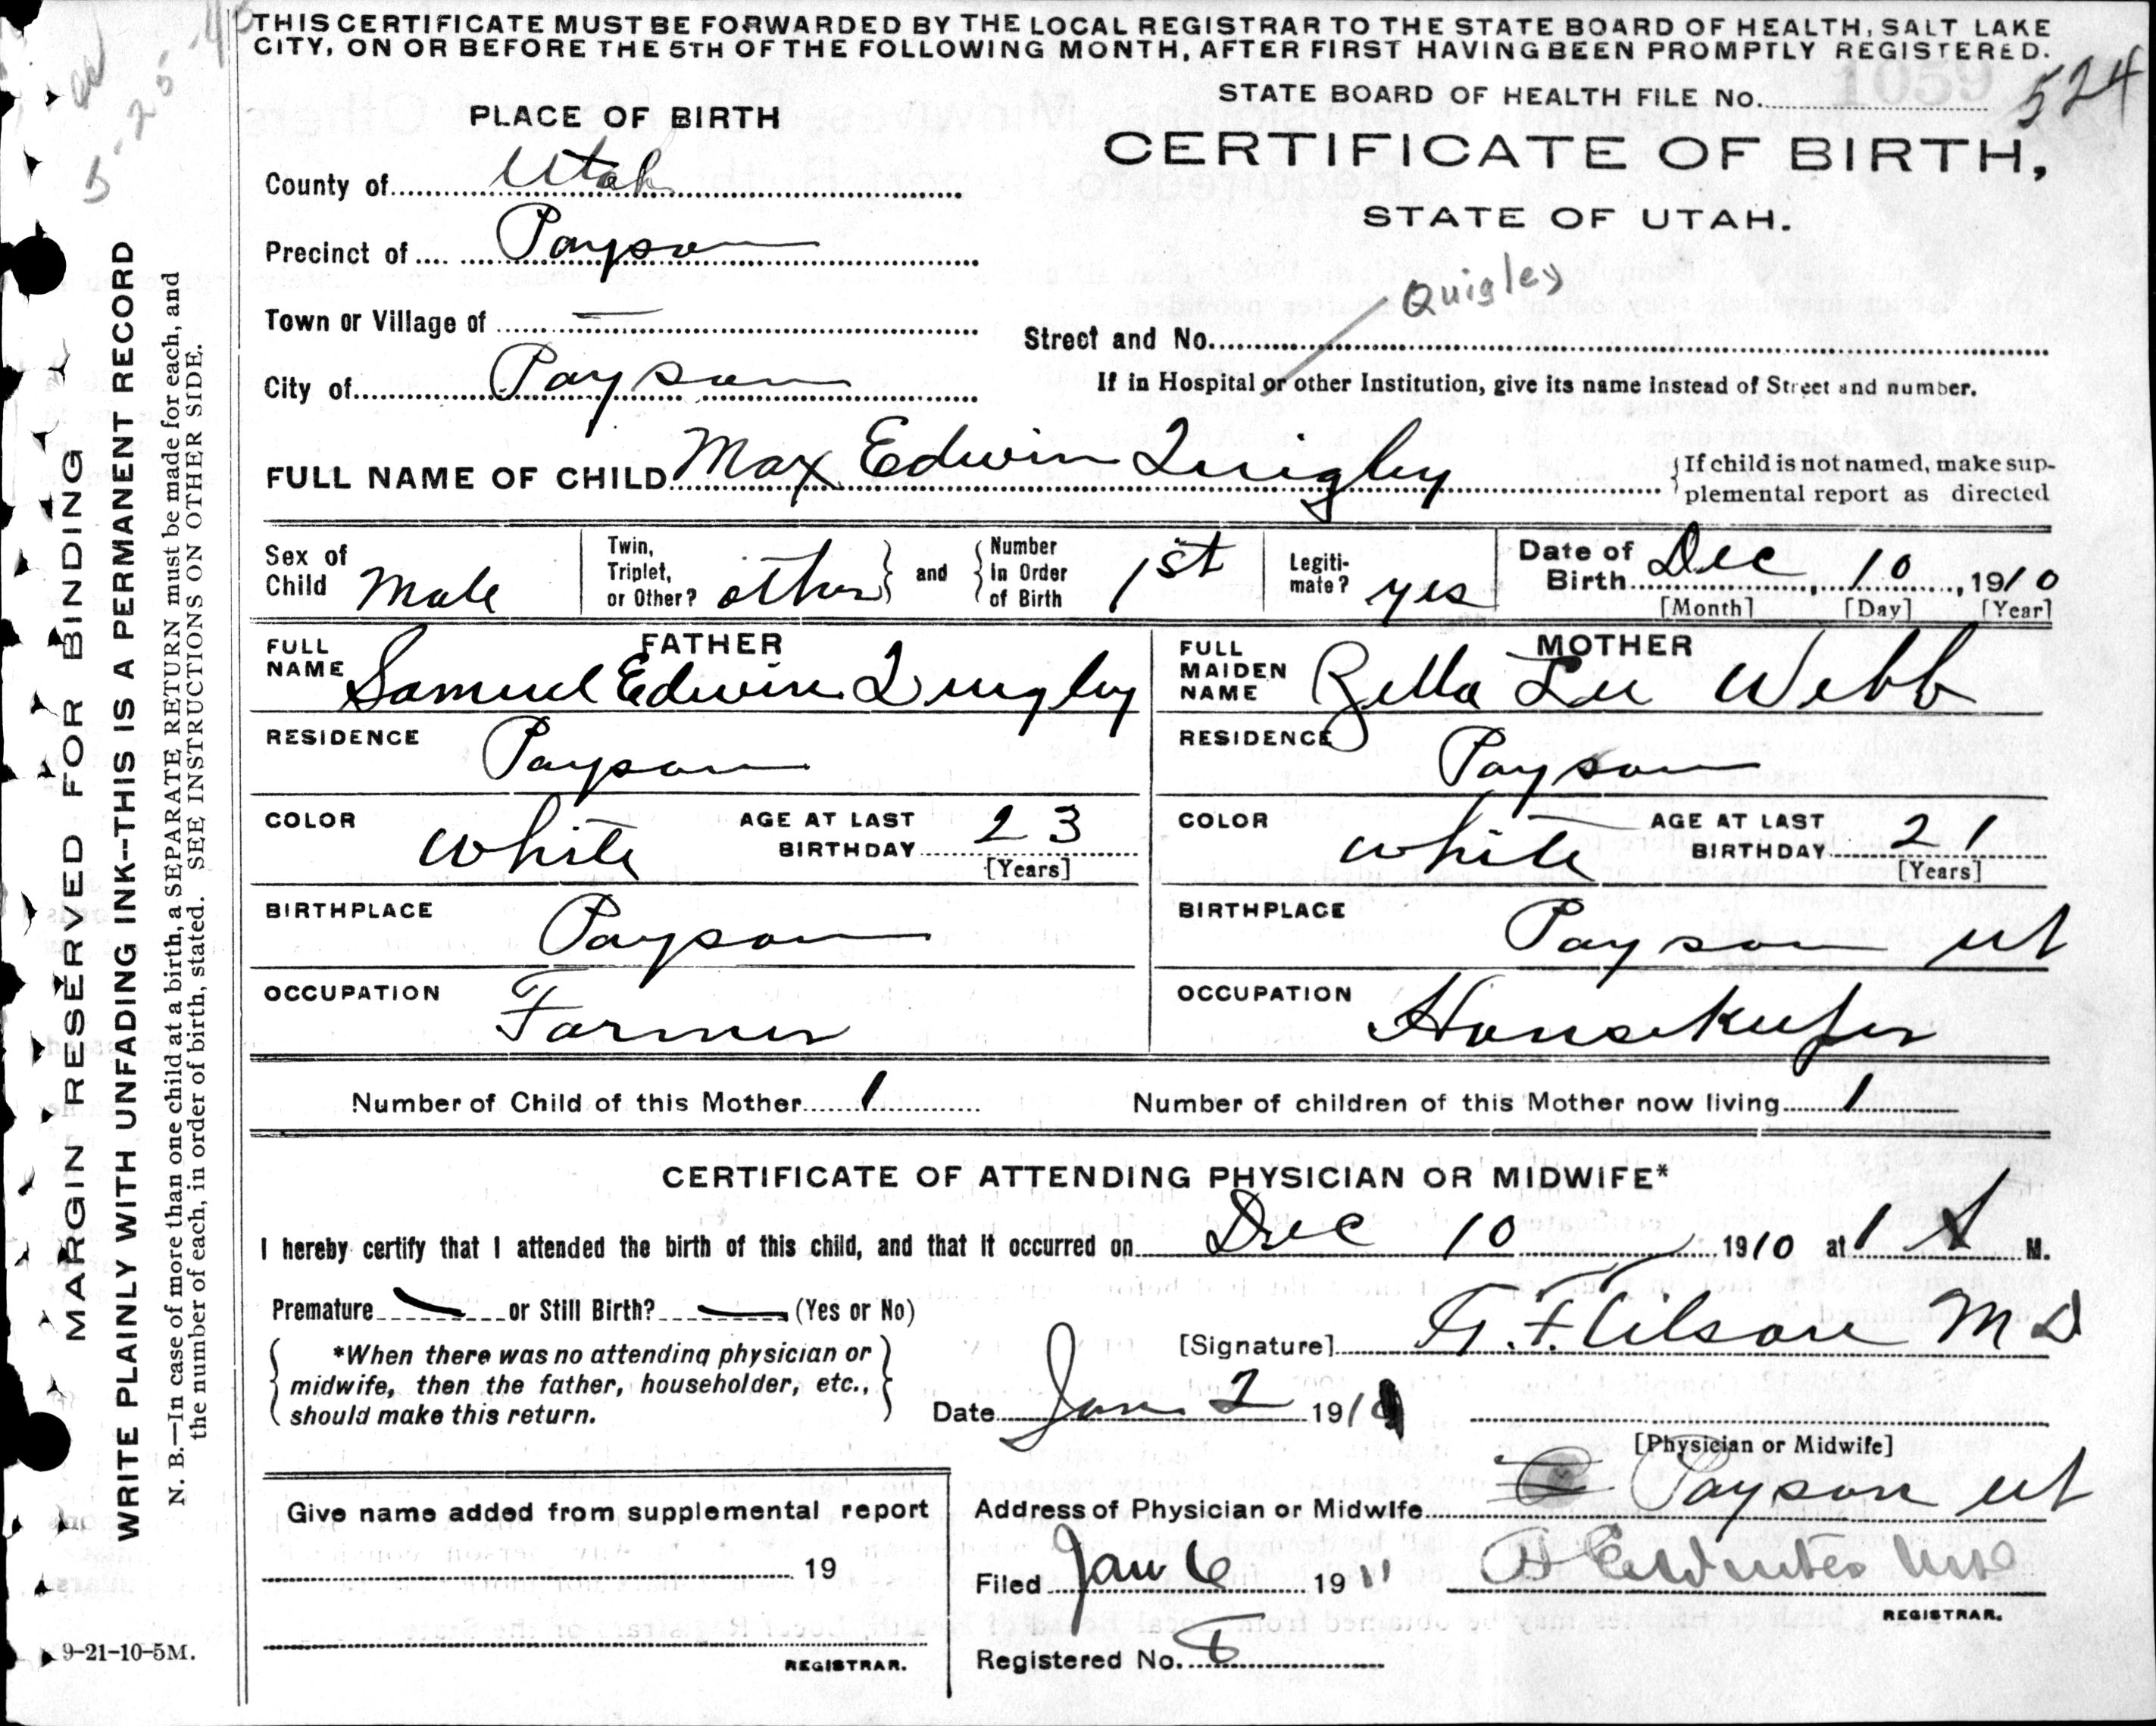 THIS CERTIFICATE MUST BE FORWARDED BY THE LOCAL REGISTRAR TO THE STATE BOARD OF HEALTH, SALT LAKE
CITY, ON OR BEFORE THE 5TH OF THE FOLLOWING MONTH, AFTER FIRST HAVING BEEN PROMPTLY REGISTERED.
STATE BOARD OF HEALTH FILE No. 1059 524
PLACE OF BIRTH
CERTIFICATE OF BIRTH,
STATE OF UTAH.
County of Utah
Precinct of Payson
Town or Village of —
City of Payson
Quigley
Street and No.
If in Hospital or other Institution, give its name instead of Street and number.
FULL NAME OF CHILD Max Edwin Quigley
If child is not named, make sup-
plemental report as directed
Sex of Child Male
Twin, Triplet, or Other? other and Number in Order of Birth 1st
Legiti-mate? yes
Date of Birth Dec 10, 1910
[Month] [Day] [Year]
FATHER
FULL NAME Samuel Edwin Quigley
RESIDENCE Payson
COLOR White AGE AT LAST BIRTHDAY 23
[Years]
BIRTHPLACE Payson
OCCUPATION Farmer
MOTHER
FULL MAIDEN NAME Zella Lee Webb
RESIDENCE Payson
COLOR White AGE AT LAST BIRTHDAY 21
[Years]
BIRTHPLACE Payson Ut
OCCUPATION Housekeeper
Number of Child of this Mother 1
Number of children of this Mother now living 1
CERTIFICATE OF ATTENDING PHYSICIAN OR MIDWIFE*
I hereby certify that I attended the birth of this child, and that it occurred on Dec 10 1910 at 1 M.
Premature — or Still Birth? — (Yes or No)
*When there was no attending physician or
midwife, then the father, householder, etc.,
should make this return.
[Signature] M D
Date Jan 2 191
[Physician or Midwife]
Address of Physician or Midwife Payson Ut
Give name added from supplemental report
19
REGISTRAR.
Filed Jan 6 1911
REGISTRAR.
Registered No. 8
MARGIN RESERVED FOR BINDING
WRITE PLAINLY WITH UNFADING INK--THIS IS A PERMANENT RECORD
N. B.—In case of more than one child at a birth, a SEPARATE RETURN must be made for each, and
the number of each, in order of birth, stated. SEE INSTRUCTIONS ON OTHER SIDE.
9-21-10-5M.